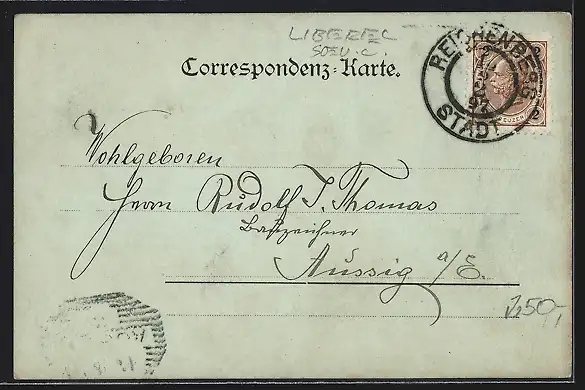 LIBEREC
Correspondenz-Karte.
REICHENBERG
STADT
97
2
2
KREUZER
Wohlgeboren
Herrn Rudolf J. Thomas
Bauzeichner
Aussig a/E.
150-,